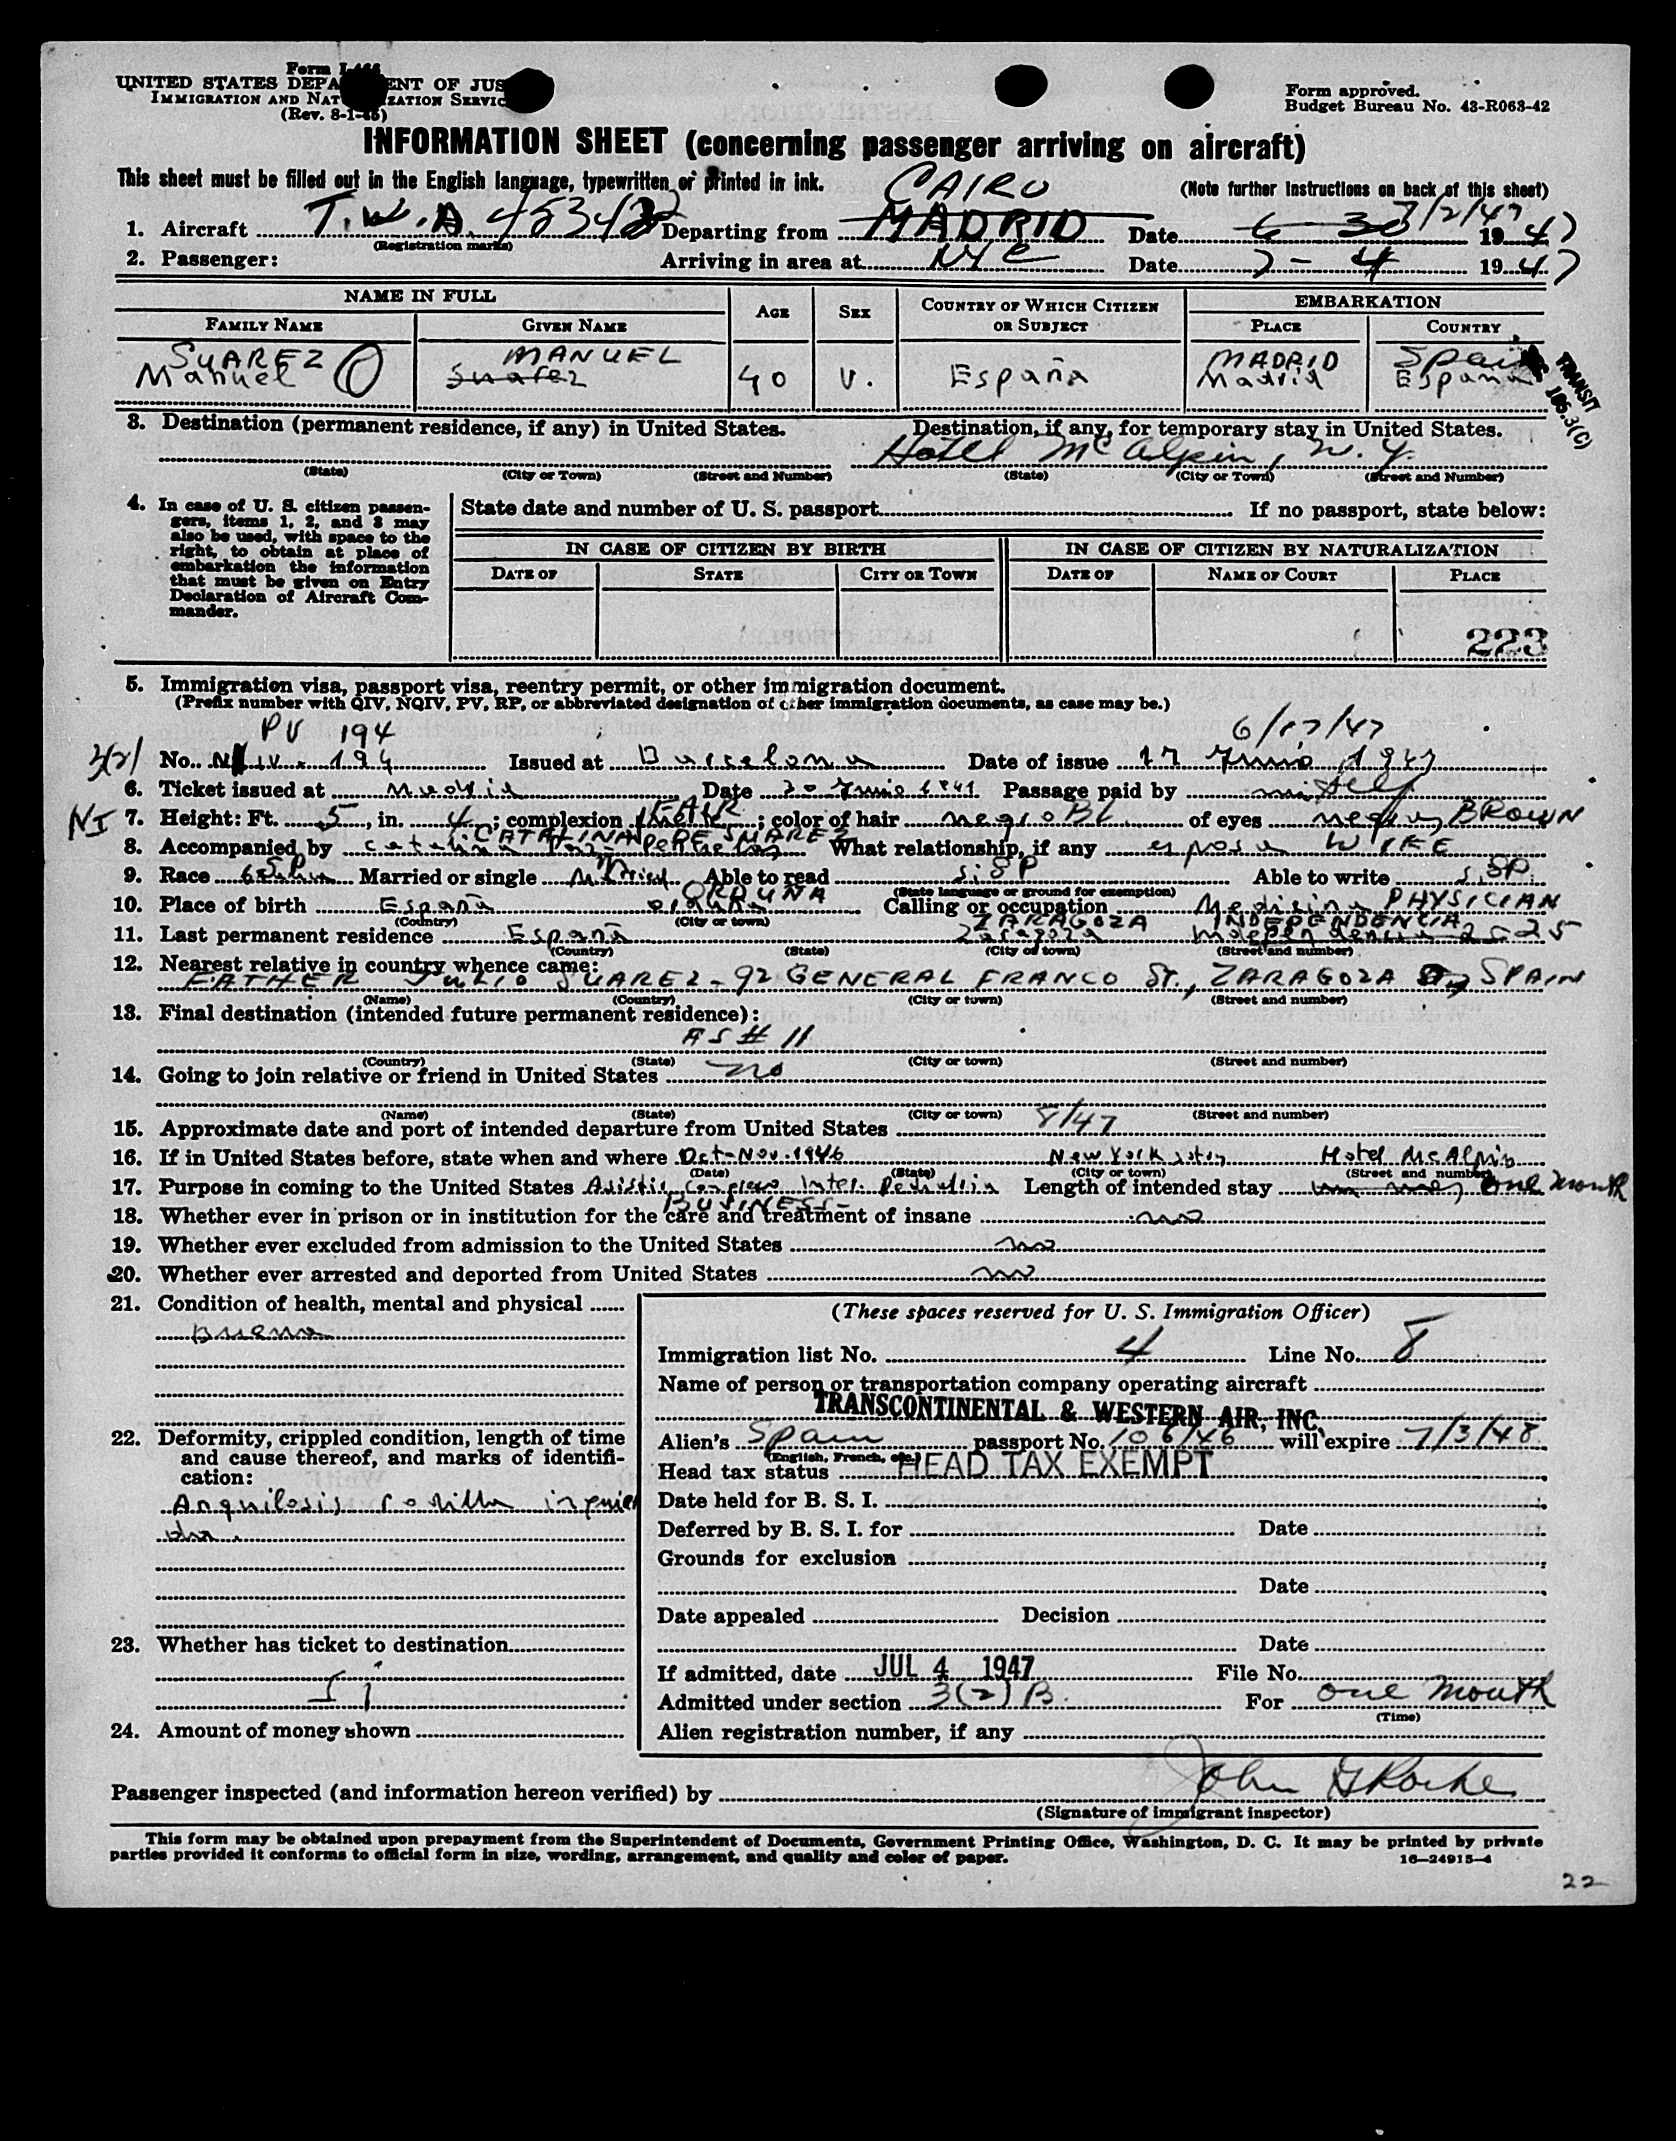 Form I-466
UNITED STATES DEPARTMENT OF JUSTICE
IMMIGRATION AND NATURALIZATION SERVICE
(Rev. 8-1-45)
Form approved.
Budget Bureau No. 43-R063-42
INFORMATION SHEET (concerning passenger arriving on aircraft)
This sheet must be filled out in the English language, typewritten or printed in ink.
(Note further instructions on back of this sheet)
CAIRO
7/2/47
1. Aircraft T.W.A. 45342 Departing from MADRID Date 6 - 30 1947
(Registration marks)
2. Passenger: Arriving in area at NYC Date 7 - 4 1947
NAME IN FULL AGE SEX COUNTRY OF WHICH CITIZEN OR SUBJECT EMBARKATION
FAMILY NAME GIVEN NAME PLACE COUNTRY
SUAREZ MANUEL MADRID Spain
Manuel Suarez 40 V. España Madrid España
TRANSIT
3. Destination (permanent residence, if any) in United States. Destination, if any, for temporary stay in United States.
Hotel McAlpin, N. Y.
(State) (City or Town) (Street and Number) (State) (City or Town) (Street and Number)
4. In case of U. S. citizen passengers, items 1, 2, and 3 may also be used, with space to the right, to obtain at place of embarkation the information that must be given on Entry Declaration of Aircraft Commander.
State date and number of U. S. passport If no passport, state below:
IN CASE OF CITIZEN BY BIRTH IN CASE OF CITIZEN BY NATURALIZATION
DATE OF STATE CITY OR TOWN DATE OF NAME OF COURT PLACE
223
5. Immigration visa, passport visa, reentry permit, or other immigration document.
(Prefix number with QIV, NQIV, PV, RP, or abbreviated designation of other immigration documents, as case may be.)
PV 194 6/17/47
3(2) No. 194 Issued at Barcelona Date of issue 17 Junio 1947
6. Ticket issued at Madrid Date 20 Junio Passage paid by Self
NI 7. Height: Ft. 5, in. 4; complexion FAIR; color of hair negro BL of eyes negros BROWN
CATALINA DE SUAREZ
8. Accompanied by What relationship, if any esposa WIFE
9. Race SP Married or single M Able to read Si SP Able to write Si SP
(State language or ground for exemption)
ORDUNA
10. Place of birth España orduña Calling or occupation Medicina PHYSICIAN
(Country) (City or town)
ZARAGOZA INDEPENDENCIA
11. Last permanent residence España Zaragoza Independencia 25
(Country) (State) (City or town) (Street and number)
12. Nearest relative in country whence came:
FATHER JULIO SUAREZ - 92 GENERAL FRANCO St., ZARAGOZA SPAIN
(Name) (Country) (City or town) (Street and number)
13. Final destination (intended future permanent residence):
AS # 11
(Country) (State) (City or town) (Street and number)
14. Going to join relative or friend in United States no
(Name) (State) (City or town) (Street and number)
15. Approximate date and port of intended departure from United States 8/47
16. If in United States before, state when and where Oct-Nov-1946 New York city Hotel McAlpin
(Date) (State) (City or town) (Street and number)
17. Purpose in coming to the United States Asistir Congreso Inter. Pediatria Length of intended stay one month
BUSINESS-
18. Whether ever in prison or in institution for the care and treatment of insane no
19. Whether ever excluded from admission to the United States no
20. Whether ever arrested and deported from United States no
21. Condition of health, mental and physical
Buena
22. Deformity, crippled condition, length of time and cause thereof, and marks of identification:
Anquilosis rodilla izquierda.
23. Whether has ticket to destination
Si
24. Amount of money shown
(These spaces reserved for U. S. Immigration Officer)
Immigration list No. 4 Line No. 8
Name of person or transportation company operating aircraft
TRANSCONTINENTAL & WESTERN AIR, INC.
Alien's Spain passport No. 106/46 will expire 7/3/48
(English, French, etc.)
Head tax status HEAD TAX EXEMPT
Date held for B. S. I.
Deferred by B. S. I. for Date
Grounds for exclusion
Date
Date appealed Decision
Date
If admitted, date JUL 4 1947 File No.
Admitted under section 3(2) B For one month
(Time)
Alien registration number, if any
Passenger inspected (and information hereon verified) by John G Roche
(Signature of immigrant inspector)
This form may be obtained upon prepayment from the Superintendent of Documents, Government Printing Office, Washington, D. C. It may be printed by private
parties provided it conforms to official form in size, wording, arrangement, and quality and color of paper.
16—24915-4
22